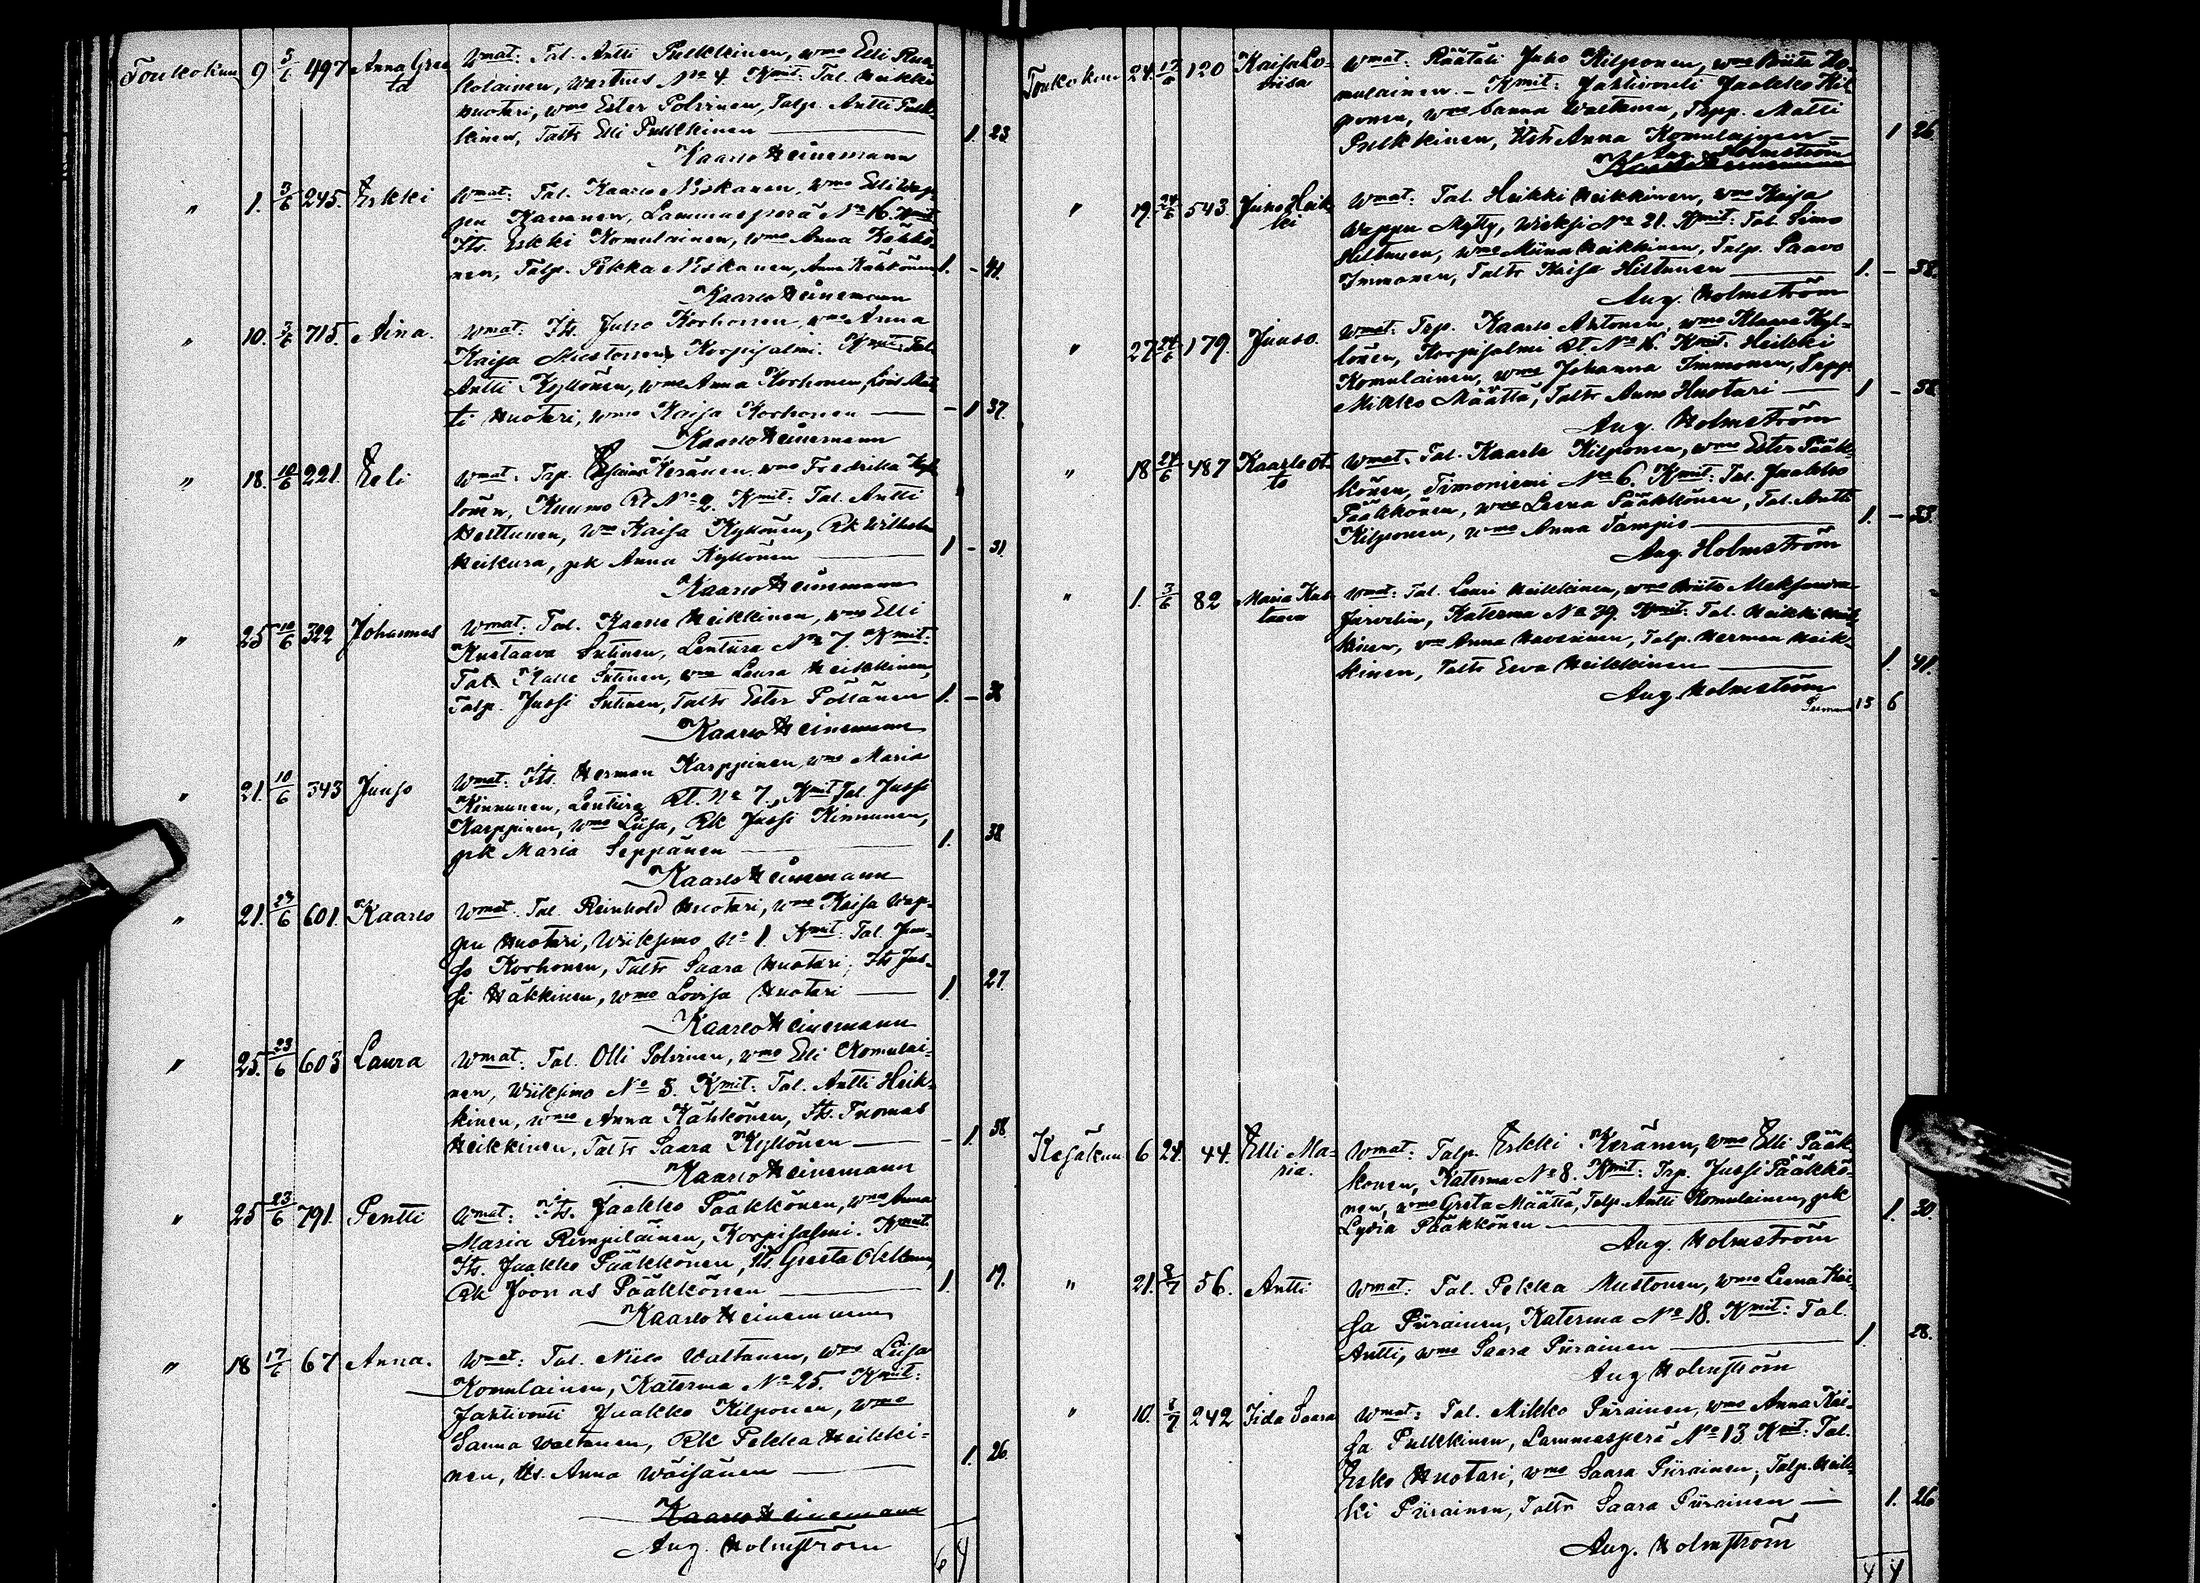 Toukokuu 9 3/6 497 Anna Gree
ta
Wmat: Tal. Antti Pulkkinen, wmo Elli
kolainen, Wartius No 4. Kmit: Tal. Heikki
Huotari, wmo Ester Polvinen, Talp. Antti Pulk
kinen, Taltr Elli Pulkkinen 1. 23
Kaarlo Heinemann
" 1. 3/6 245. Erkki
Wmat: Tal. Kaarlo Niskanen, wmo Elli Wap
pu Kananen, Lammasperä No 16. Kmit
Its. Erkki Komulainen, wmo Anna Kähkö
nen, Talp. Pekka Niskanen, Anna Kähkönen 1. - 41.
Kaarlo Heinemann
" 10. 3/6 715. Aina.
Wmat: Its. Juho Korhonen, wmo Anna
Kaisa Mustonen, Korpisalmi. Kmit: Tal.
Antti Kyllönen, wmo Anna Korhonen, Lois Mat
ti Huotari, wmo Kaisa Korhonen - 1 37.
Kaarlo Heinemann
" 18. 10/6 221. Eeli
Wmat: Trp. Keränen, wmo Fredrika Kyl
lönen, Kuumo Rt No 2. Kmit: Tal. Antti
Herttunen, wm Kaisa Kyllönen, Rk Wilhelm
Heikura, pk Anna Kyllönen 1 - 31.
Kaarlo Heinemann
" 25 10/6 322 Johannes
Wmat: Tal. Kaarlo Heikkinen, wmo Elli
Kustaava Sutinen, Lentiira No 7. Kmit:
Tal. Kalle Sutinen, wmo Leena Heikkinen,
Talp. Jussi Sutinen, Taltr Ester Pöllänen 1. -
Kaarlo Heinemann
" 21. 10/6 343 Junso
Wmat: Its. Herman Karppinen, wmo Maria
Kinnunen, Lentiira Rt. No 7. Kmit Tal. Jussi
Karppinen, wmo Liisa, Rk Jussi Kinnunen,
pk Maria Seppänen 1. 38
Kaarlo Heinemann
" 21. 23/6 601. Kaarlo
Wmat. Tal. Reinhold Huotari, wmo Kaisa Wap-
pu Huotari, Wiiksimo No 1. Kmit: Tal. Jun-
so Korhonen, Taltr Saara Huotari; Its Jus-
si Häkkinen, wmo Lovisa Huotari 1. 27.
Kaarlo Heinemann
" 25. 23/6 603 Laura
Wmat: Tal. Olli Polvinen, wmo Elli Komulai-
nen, Wiiksimo No 5. Kmit: Tal. Antti Heik-
kinen, wmo Anna Kähkönen, Its. Tuomas
Heikkinen, Taltr Saara Kyllönen - 1. 38
Kaarlo Heinemann
" 25 23/6 791. Pentti
Wmat: Its. Jaakko Pääkkönen, wmo Anna
Maria Rimpiläinen, Korpisalmi. Kmit:
Its. Jaakko Pääkkönen, Its. Greeta
Rk Joonas Pääkkönen 1. 19.
Kaarlo Heinemann
" 18 17/6 67 Anna.
Wmat: Tal. Niilo Waltanen, wmo Liisa
Komulainen, Katerma No 25. Kmit:
Jahtivouti Jaakko Kilponen, wmo
Sanna Waltanen, Rk Pekka Heikki-
nen, Its. Anna Wäisänen 1. 26
Kaarlo Heinemann
Aug. Holmström
6 4
Toukokuu 24. 17/6 120 Kaisa Lo-
viisa
Wmat: Räätäli Juho Kilponen, wmo Briita Ko-
mulainen. - Kmit: Jahtivouti Jaakko Kil
ponen, wmo Sanna Waltanen, Trpp. Matti
Pulkkinen, Itstr Anna Komulainen 1 26
Aug. Holmström
Kaarlo Heinemann
" 19. 24/6 543. Juho Heik
ki
Wmat: Tal. Heikki Heikkinen, wmo Kaisa
Wappu Mytty, Wieksi No 21. Kmit: Tal. Simo
Hiltunen, wmo Miina Heikkinen, Talp. Paavo
Immonen, Taltr Kaisa Hiltunen 1. - 38.
Aug. Holmström
" 27 24/6 179. Junso.
Wmat: Trp. Kaarlo Ahtonen, wmo Klaara Kyl-
lönen, Korpisalmi Rt. No 16. Kmit: Heikki
Komulainen, wmo Johanna Immonen, Sepp.
Mikko Määttä, Taltr Anna Huotari 1 - 38
Aug. Holmström
" 18 24/6 487 Kaarlo Ot-
to
Wmat: Tal. Kaarle Kilponen, wmo Ester Pääk-
könen, Timoniemi No 6. Kmit: Tal. Jaakko
Pääkkönen, wmo Leena Pääkkönen, Tal. Antti
Kilponen, wmo Anna Tampio 1. - 33.
Aug. Holmström
" 1. 3/6 82 Maria Kus
taava
Wmat: Tal. Lauri Heikkinen, wmo Briita Aleksandra
Järvelin, Katerma No 39. Kmit: Tal. Heikki Heik
kinen, wmo Anna Haverinen, Talp. Herman Heik-
kinen, Taltr Eeva Heikkinen 1. 41.
Aug. Holmström
Summa 15 6
Kesäkuu 6 24. 44. Elli Ma-
ria.
Wmat: Talp. Erkki Keränen, wmo Elli Pääk
könen, Katerma No 8. Kmit: Trp. Jussi Pääkkö-
nen, wmo Greta Määttä, Talp. Antti Komulainen, pk
Lydia Pääkkönen 1. 30.
Aug. Holmström
" 21. 8/7 56. Antti
Wmat: Tal. Pekka Mustonen, wmo Leena Kai-
sa Piirainen, Katerma No 18. Kmit: Tal.
Antti, wmo Saara Piirainen 1. 28.
Aug Holmström
" 10. 8/7 242 Iida Saara
Wmat: Tal. Mikko Piirainen, wmo Anna Kai-
sa Pulkkinen, Lammasperä No 13. Kmit: Tal.
Esko Huotari, wmo Saara Piirainen, Talp. Heik-
ki Piirainen, Taltr Saara Piirainen 1. 26
Aug. Holmström
4 4